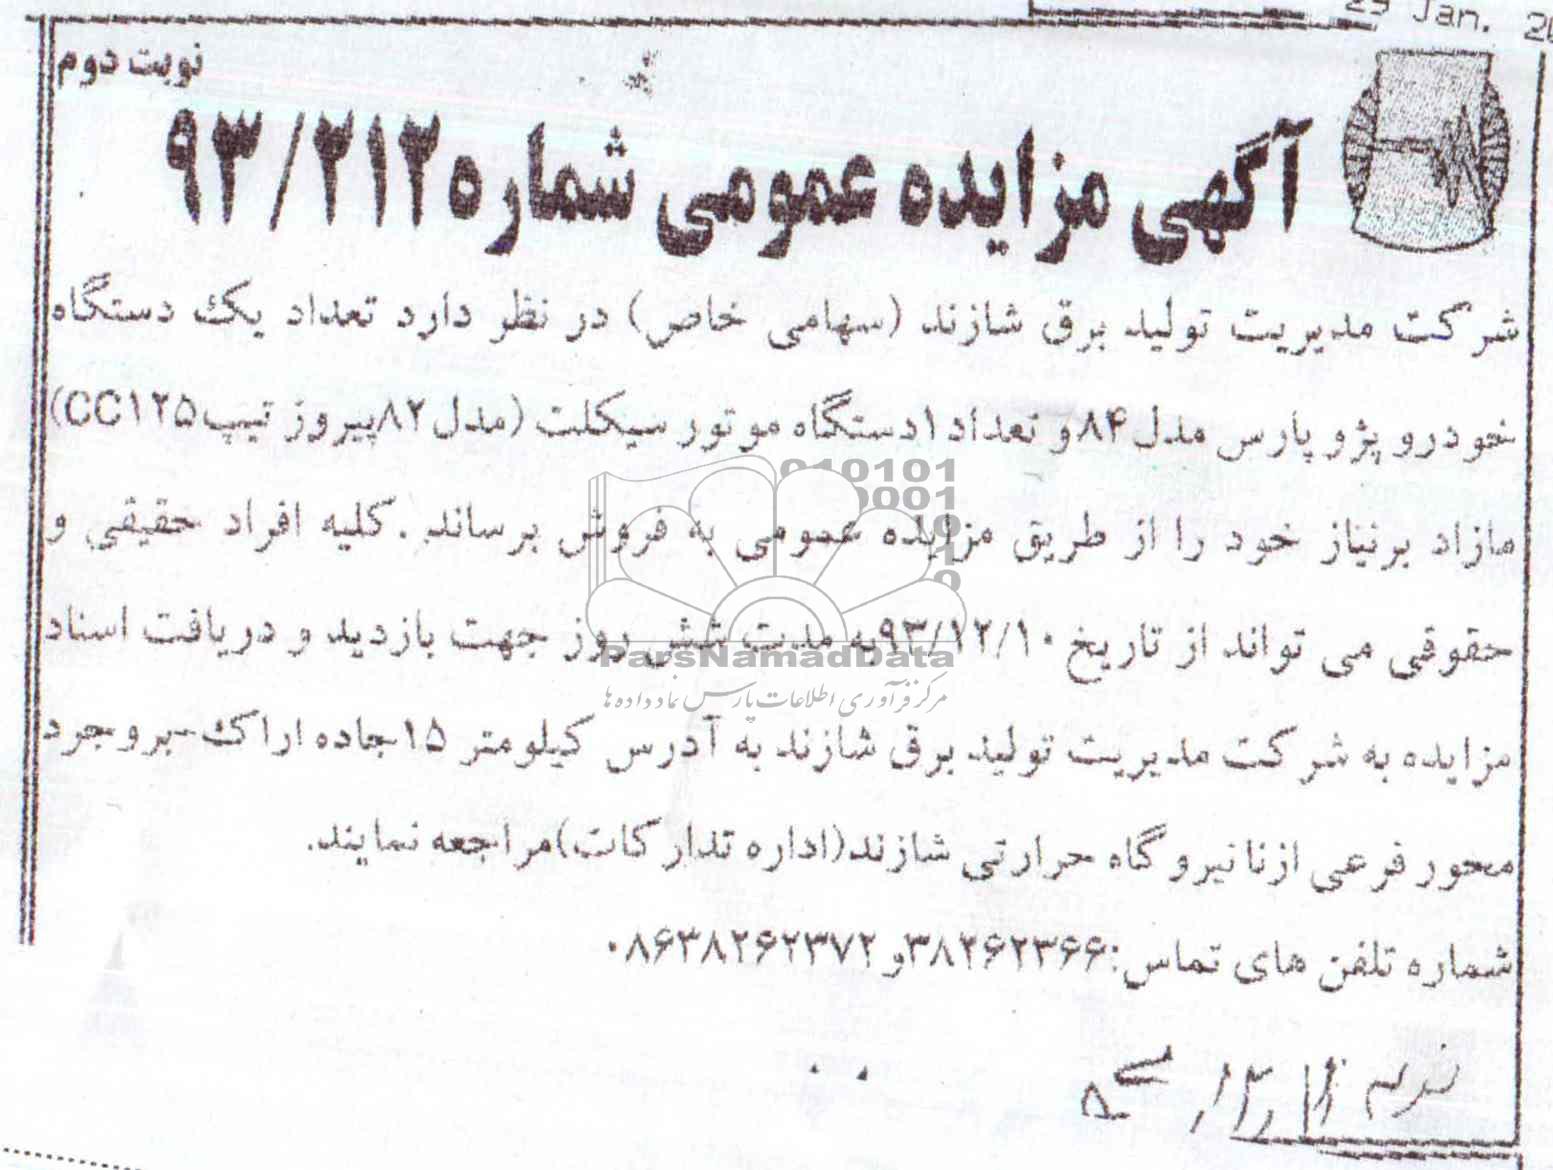 29 Jan. 20
نوبت دوم
آگهی مزایده عمومی شماره ۹۳/۲۱۲
شرکت مدیریت تولید برق شازند (سهامی خاص) در نظر دارد تعداد یک دستگاه
خودرو پژو پارس مدل ۸۴ و تعداد ۱ دستگاه موتور سیکلت (مدل ۸۲ پیروز تیپ CC۱۲۵)
مازاد برنیاز خود را از طریق مزایده عمومی به فروش برساند. کلیه افراد حقیقی و
حقوقی می تواند از تاریخ ۹۳/۱۲/۱۰ به مدت شش روز جهت بازدید و دریافت اسناد
مزایده به شرکت مدیریت تولید برق شازند به آدرس کیلومتر ۱۵ جاده اراک-بروجرد
محور فرعی ازنا نیروگاه حرارتی شازند(اداره تدارکات)مراجعه نمایند.
شماره تلفن های تماس: ۳۸۲۶۲۳۶۶ و ۰۸۶۳۸۲۶۲۳۷۲
010101
0001
ParsNamadData
مرکز فرآوری اطلاعات پارس نماد داده ها